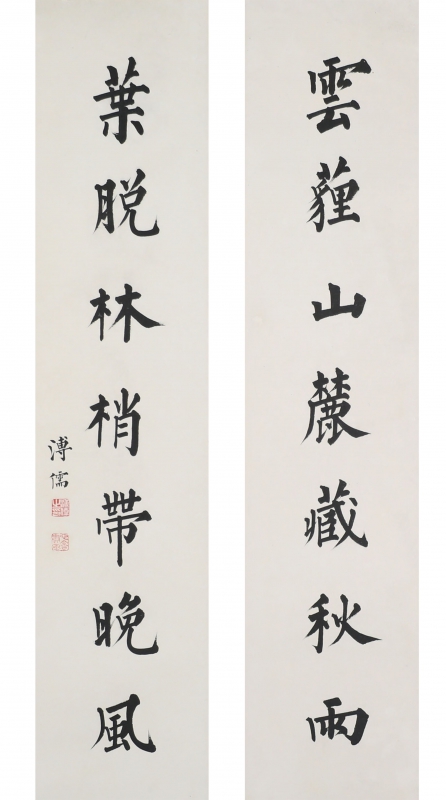 雲薶山麓藏秋雨
葉脫林梢帶晚風
溥儒